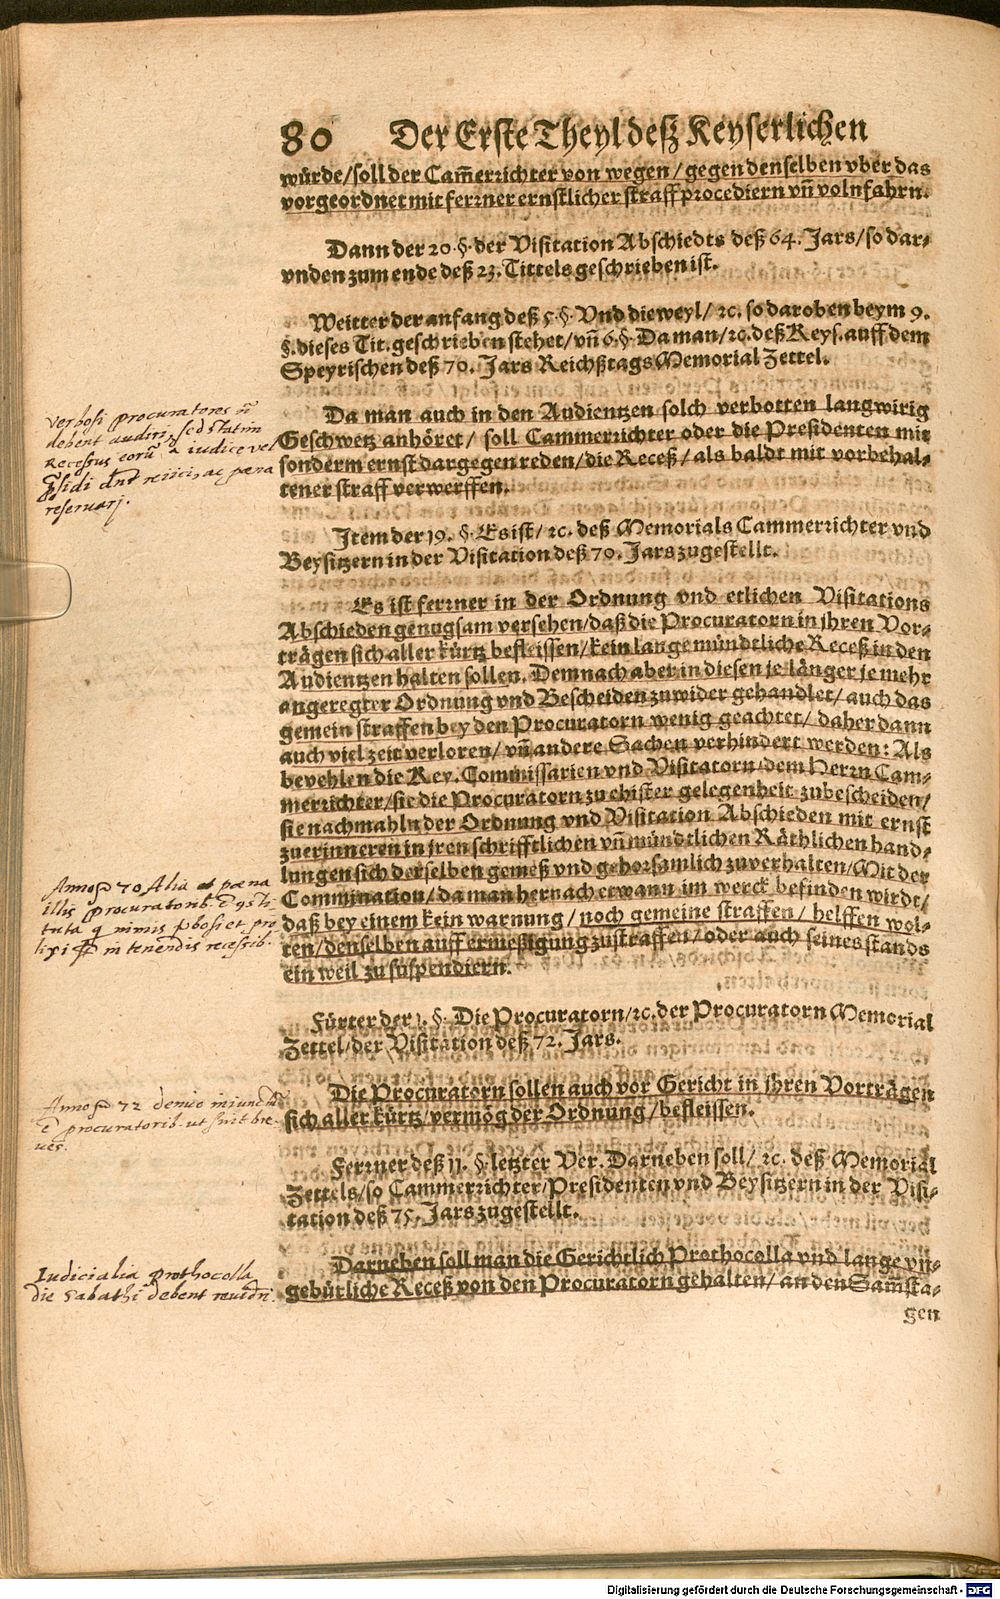 80 Der Erste Theyl deß Keyserlichen
würde/soll der Cam̃errichter von wegen/gegen denselben vber das
vorgeordnet mit ferrner ernstlicher straff procediern vñ volnfahrn.
Dann der 20. §. der Visitation Abschiedts deß 64. Jars/so dar-
vnden zum ende deß 23. Tittels geschrieben ist.
Weitter der anfang deß 5. §. Vnd dieweyl/ꝛc. so daroben beym 9.
§. dieses Tit. geschrieben stehet/vñ 6. §. Da man/ꝛc. deß Keys. auff dem
Speyrischen deß 70. Jars Reichßtags Memorial Zettel.
Verbosi procuratores
debent audiri, sed statim
Recessus eorū a iudice vel
reiici, ac pœna
reseruari.
Da man auch in den Audientzen solch verbotten langwirig
Geschwetz anhöret/ soll Cammerrichter oder die Presidenten mit
sonderm ernst dargegen reden/die Receß/als baldt mit vorbehal-
tener straff verwerffen.
Item der 19. §. Es ist/ꝛc. deß Memorials Cammerrichter vnd
Beysitzern in der Visitation deß 70. Jars zugestellt.
Es ist ferrner in der Ordnung vnd etlichen Visitations
Abschieden genugsam versehen/daß die Procuratorn in ihren Vor-
trägen sich aller kürtz befleissen/kein lange mündtliche Receß in den
Audientzen halten sollen. Demnach aber in diesen je länger je mehr
angeregter Ordnung vnd Bescheiden zuwider gehandlet/auch das
gemein straffen bey den Procuratorn wenig geachtet/ daher dann
auch viel zeit verloren/vñ andere Sachen verhindert werden: Als
bevehlen die Key. Commissarien vnd Visitatorn dem Herrn Cam-
merrichter/sie die Procuratorn zu ehister gelegenheit zubescheiden/
sie nachmahln der Ordnung vnd Visitation Abschieden mit ernst
zuerinneren in jren schrifftlichen vñ mündtlichen Räthlichen hand-
lungen sich derselben gemeß vnd gehorsamlich zuverhalten/Mit der
Commination/da man hernach etwann im werck befinden wirdt/
daß bey einem kein warnung/noch gemeine straffen/ helffen wol-
ten/denselben auff ermeßigung zustraffen/oder auch seines stands
ein weil zu suspendiern.
Anno 70 Alia pœna
illis procuratorib.
nimis
in tenendis recessib.
Fürter der 1. §. Die Procuratorn/ꝛc. der Procuratorn Memorial
Zettel/der Visitation deß 72. Jars.
Anno 72 denuo
procuratorib. ut sint bre-
ues.
Die Procuratorn sollen auch vor Gericht in ihren Vorträgen
sich aller kürtz/vermög der Ordnung/befleissen.
Ferrner deß 11. §. letzter Ver. Darneben soll/ꝛc. deß Memorial
Zettels/so Cammerrichter/Presidenten vnd Beysitzern in der Visi-
tation deß 75. Jars zugestellt.
Iudicialia prothocolla
die Sabathi debent
Darneben soll man die Gerichtlich Prothocolla vnd lange vn-
gebürliche Receß von den Procuratorn gehalten/an den Sam̃sta-
gen
Digitalisierung gefördert durch die Deutsche Forschungsgemeinschaft - DFG